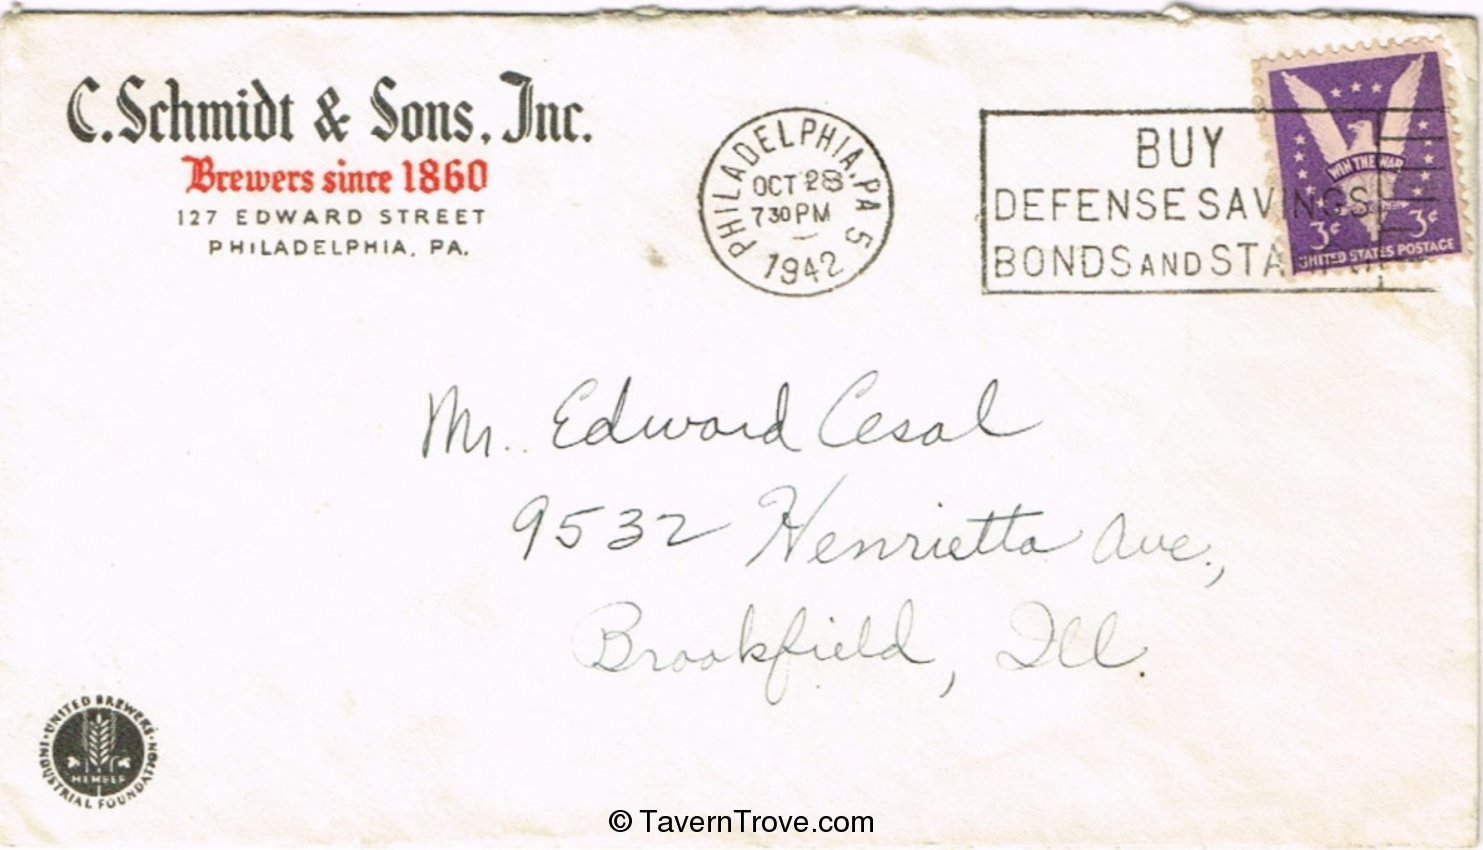 C. Schmidt & Sons, Inc.
Brewers since 1860
127 EDWARD STREET
PHILADELPHIA, PA.
PHILADELPHIA, PA 5
OCT 28
7 30 PM
1942
BUY
DEFENSE SAVINGS
BONDS AND STA
WIN THE WAR
3¢ 3¢
UNITED STATES POSTAGE
Mr. Edward Cesal
9532 Henrietta Ave.,
Brookfield, Ill.
UNITED BREWERS INDUSTRIAL FOUNDATION
MEMBER
© TavernTrove.com